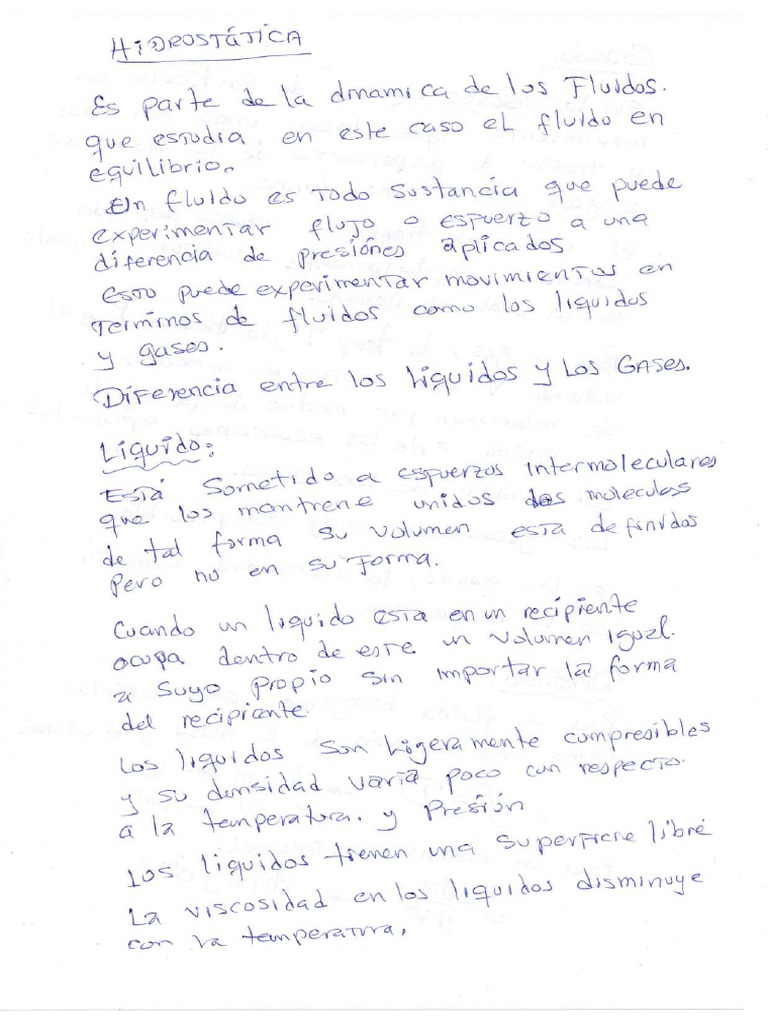 HIDROSTÁTICA
Es parte de la dinamica de los Fluidos.
que estudia en este caso el fluido en
equilibrio.
Un fluido es Todo sustancia que puede
experimentar flujo o esfuerzo a una
diferencia de presiónes aplicados
Esto puede experimentar movimientos en
Terminos de fluidos como los liquidos
y gases.
Diferencia entre los liquidos y Los Gases.
Liquido:
Está Sometido a esfuerzos Intermoleculares
que los mantiene unidos las moleculas
de tal forma su volumen esta definidos
Pero no en su Forma.
Cuando un liquido esta en un recipiente
ocupa dentro de este un volumen igual.
a suyo propio sin importar la forma
del recipiente.
Los liquidos son ligeramente compresibles
y su densidad varia poco con respecto.
a la temperatura. y Presión
Los liquidos tienen una superficie libre
La viscosidad en los liquidos disminuye
con la temperatura.